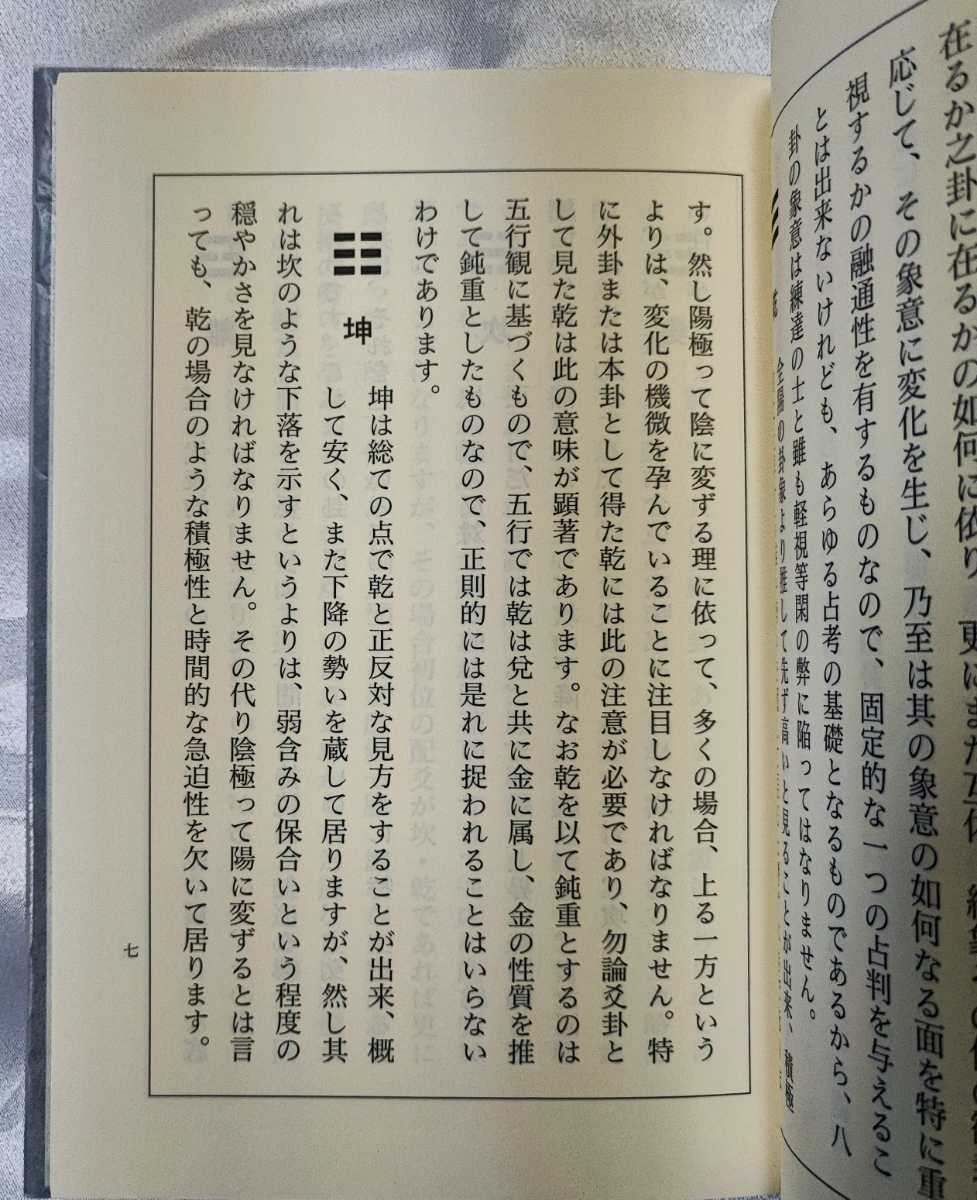 在るか之卦に在るかの如何に依り、更にまた
応じて、その象意に変化を生じ、乃至は其の象意の如何なる面を特に重
視するかの融通性を有するものなので、固定的な一つの占判を与えるこ
とは出来ないけれども、あらゆる占考の基礎となるものであるから、八
卦の象意は練達の士と雖も軽視等閑の弊に陥ってはなりません。
す。然し陽極って陰に変ずる理に依って、多くの場合、上る一方という
よりは、変化の機微を孕んでいることに注目しなければなりません。特
に外卦または本卦として得た乾には此の注意が必要であり、勿論爻卦と
して見た乾は此の意味が顕著であります。なお乾を以て鈍重とするのは
五行観に基づくもので、五行では乾は兌と共に金に属し、金の性質を推
して鈍重としたものなので、正則的には是れに捉われることはいらない
わけであります。
☷ 坤
坤は総ての点で乾と正反対な見方をすることが出来、概
して安く、また下降の勢いを蔵して居りますが、然し其
れは坎のような下落を示すというよりは、弱含みの保合いという程度の
穏やかさを見なければなりません。その代り陰極って陽に変ずるとは言
っても、乾の場合のような積極性と時間的な急迫性を欠いて居ります。
七